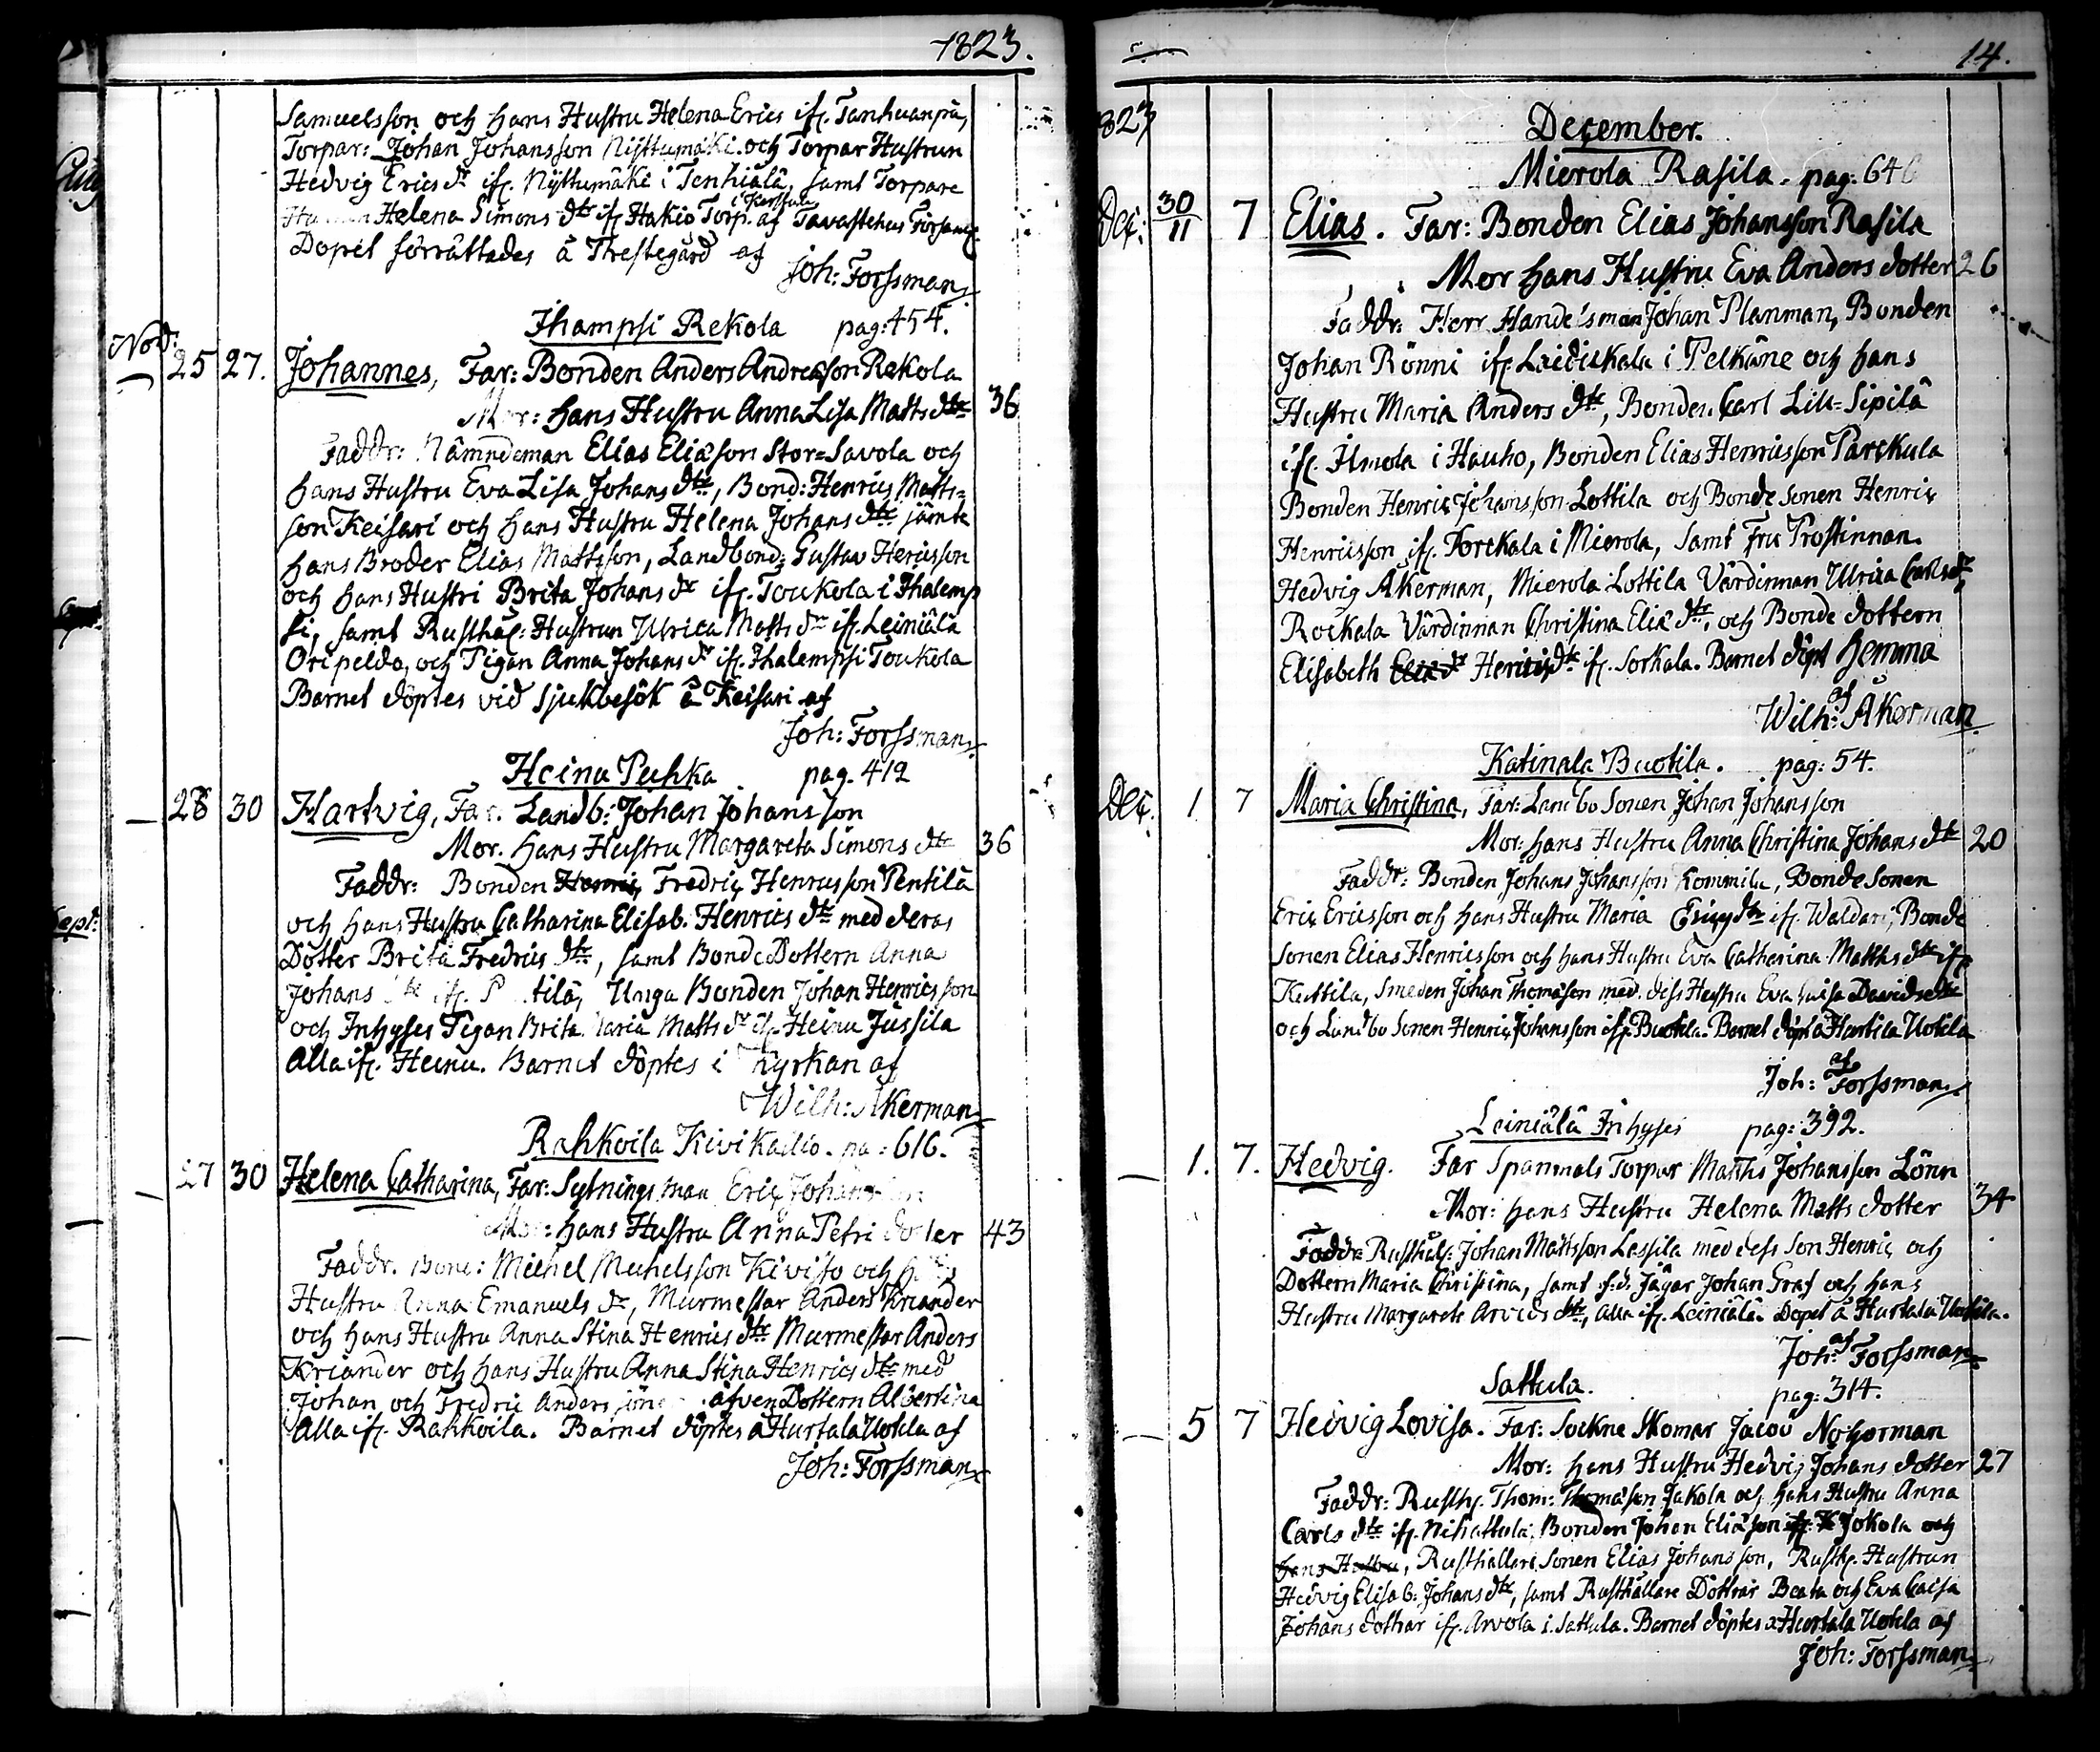 1823.
Samuelsson och hans Hustru Helena Erics ifr. Tanhuanpä,
Torpar: Johan Johansson Nysttumäki och Torpar Hustrun
Hedvig Ericsdr ifr. Nysttumäki i Tenhiälä, samt Torpare
Helena Simons dtr ifr Hakio Torp. af Tavastehus
Dopet förrättades å Prestegård af
Joh: Forssman
Ihampsi Rekola pag: 454.
Nov:
25 27. Johannes, Far: Bonden Anders Andreasson Rekola
Mor: hans Hustru Anna Lisa Matts dtr 36
Faddr: Nämndeman Elias Eliäson Stor=Savola och
hans Hustru Eva Lisa Johans dtr, Bond: Henrics Matts=
son Keisari och hans Hustru Helena Johans dtr jämte
hans Broder Elias Mattsson, Landbond: Gustav Hericsson
och hans Hustri Brita Johans dr ifr. Toukola i Ihalemp
si, samt Rusthål: Hustrun Ulrica Matts dr ifr. Leiniälä
Oripeldo, och Pigan Anna Johans dr ifr. Ihalempsi Toukola
Barnet döptes vid sjukbesök å Keisari af
Joh: Forssman
Heinu Puhka pag. 412
28 30 Hartvig, Far. Landb: Johan Johansson
Mor. hans Hustru Margareta Simons dtr 36
Faddr: Bonden Henric Fredric Henricsson Pentilä
och hans Hustru Catharina Elisab. Henrics dtr med deras
Dotter Brita Fredrics dtr, samt BondeDottern Anna
Johans ifr. Unga Bonden Johan Henricsson
och Inhyses Pigan Brita Maria Matts dr ifr. Heinu Jussila
Alla ifr. Heinu. Barnet döptes i Kyrkan af
Wilh: Åkerman
Rahkoila Kivikallio. pa: 616.
27 30 Helena Catharina, Far: Sytningsman Eric Johansson
Mor: hans Hustru Anna Petri dotter 43
Faddr. Bond: Michel Michelsson Kivisto och hans
Hustru Anna Emanuels dr, Murmestar Anders Kriander
och hans Hustru Anna Stina Henrics dtr Murmestar Anders
Kriander och hans Hustru Anna Stina Henrics dtr med
Johan och Fredric Anders söner äfven Dottern Albertina
Alla ifr. Rahkoila. Barnet döptes å Hurtala Uotila af
Joh: Forssman
14.
823
December.
Mierola Rasila. pag: 646
Dec: 30/11 7 Elias. Far: Bonden Elias Johansson Rasila
Mor hans Hustru Eva Anders dotter 26
Faddr: Herr Handelsman Johan Planman, Bonden
Johan Rönni ifr. Laitiskala i Pelkäne och hans
Hustru Maria Anders dtr, Bonden Carl Lill=Sipilä
ifr. Ilmola i Hauho, Bonden Elias Henricsson Parckula
Bonden Henric Johansson Lottila och Bonde Sonen Henric
Henricsson ifr. Torckala i Mierola, samt Fru Prostinnan
Hedvig Åkerman, Mierola Lottila Värdinnan Ulrica Carlsdr,
Rockala Värdinnan Christina Eliä dtr, och Bonde dottern
Elisabeth Eliä dr Henrics dtr ifr. Sorkala. Barnet döpt hemma
af
Wilh: Åkerman
Katinala Buotila. pag: 54.
Dec. 1 7 Maria Christina, Far: Landbo Sonen Johan Johansson
Mor: hans Hustru Anna Christina Johans dtr 20
Faddr: Bonden Johans Johansson Kommila, Bonde Sonen
Eric Ericsson och hans Hustru Maria Erics dtr ifr. Waldari, Bonde
Sonen Elias Henricsson och hans Hustru Eva Catherina Matths dtr ifr.
Kuttila, Smeden Johan Thomäson med dess Hustru Eva Caisa Davids dtr
och Landbo Sonen Henric Johansson ifr. Buotila. Barnet döpt å Hurtila Uotila
af
Joh: Forssman
Leiniälä Inhyses pag: 392.
1. 7. Hedvig. Far Spanmals Torpar Matths Johansson Lönn
Mor: hans Hustru Helena Matts dotter 34
Faddr: Rusthål: Johan Mattsson Lassila med dess Son Henric och
Dottern Maria Christina, samt f.d. Jägar Johan Graf och hans
Hustru Margareta Arvids dtr, alla ifr. Leiniälä. Döpet å Hurtala Uotila.
af
Joh: Forssman
Sattula. pag: 314.
5 7 Hedvig Lovisa. Far: Sockne Skomar Jacob Nyhorman
Mor: hans Hustru Hedvig Johans dotter 27
Faddr: Rusth. Thom: Thomäson Jakola och hans Hustru Anna
Carls dtr ifr. Nihattula, Bonden Johan Eliäson ifr. K Jokola och
hans Hustru, Rusthållare Sonen Elias Johansson, Rusth. Hustrun
Hedvig Elisab: Johans dtr, samt Rusthållare Döttrar Beata och Eva Caisa
Johans dottrar ifr. Arvola i Sattula. Barnet döptes å Hurtala Uotila af
Joh: Forssman